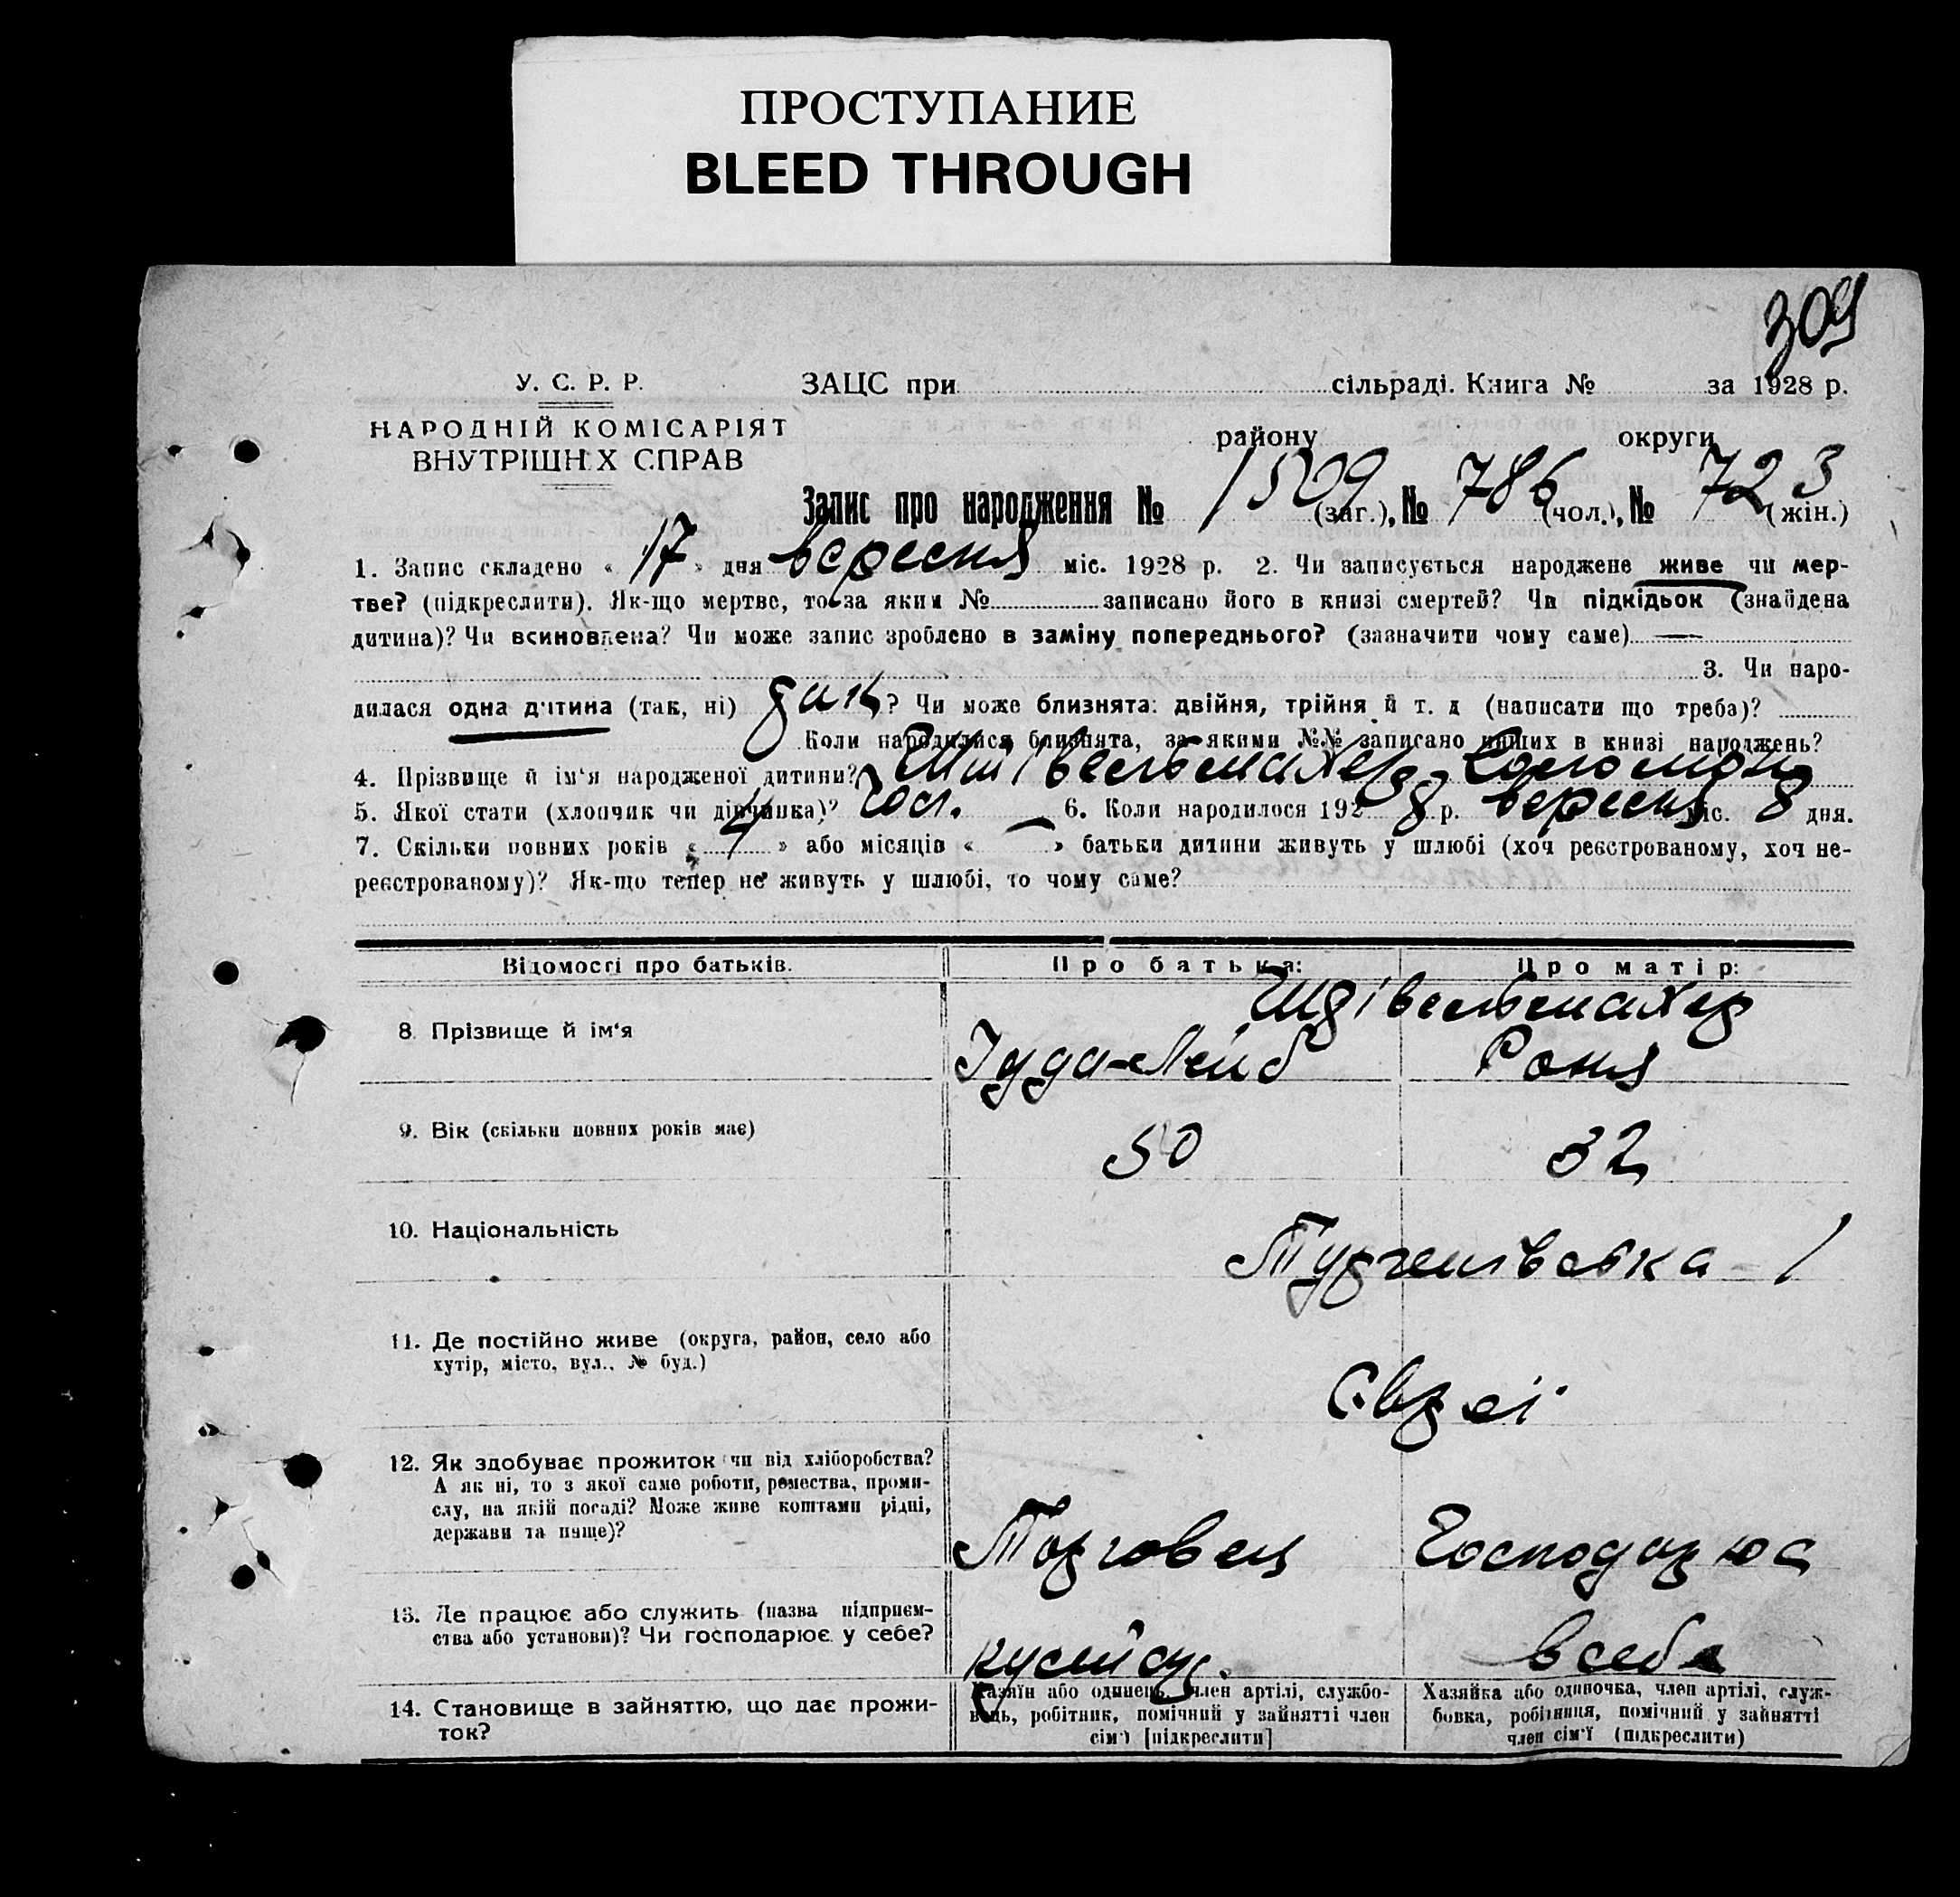 ПРОСТУПАНИЕ
BLEED THROUGH
309
У. С. Р. Р.
ЗАЦС при сільраді. Книга № за 1928 р.
НАРОДНІЙ КОМІСАРІЯТ
ВНУТРІШНІХ СПРАВ
району округи
Запис про народження № 1509 (заг.), № 786 (чол.), № 723 (жін.)
1. Запис складено « 17 » дня вересня міс. 1928 р. 2. Чи записується народжене живе чи мер-
тве? (підкреслити). Як-що мертве, то за яким № записано його в книзі смертей? Чи підкідьок (знайдена
дитина)? Чи всиновлена? Чи може запис зроблено в заміну попереднього? (зазначити чому саме) —
3. Чи наро-
дилася одна дитина (так, ні) так? Чи може близнята: двійня, трійня й т. д (написати що треба)?
Коли народилися близнята, за якими №№ записано инших в книзі народжень?
4. Прізвище й ім'я народженої дитини? Соломон
5. Якої стати (хлопчик чи дівчинка)? 6. Коли народилося 1928 р. вересня міс. 8 дня.
7. Скільки повних років « 4 » або місяців « — » батьки дитини живуть у шлюбі (хоч реєстрованому, хоч не-
реєстрованому)? Як-що тепер не живуть у шлюбі, то чому саме?
Відомості про батьків. Про батька: Про матір:
8 Прізвище й ім'я Іуда-Лейб Соня
9. Вік (скільки повних років має) 50 32
10. Національність
11. Де постійно живе (округа, район, село або
хутір, місто, вул., № буд.) Євреї
12. Як здобуває прожиток чи від хліборобства?
А як ні, то з якої саме роботи, ремества, проми-
слу, на якій посаді? Може живе коштами рідні,
держави та инше)? Торговец Господарює
13. Де працює або служить (назва підприєм-
ства або установи)? Чи господарює у себе? всебе
14. Становище в зайняттю, що дає прожи-
ток?
Хазяїн або одинець, член артілі, службо-
вець, робітник, помічний у зайнятті член
сім'ї [підкреслити]
Хазяйка або одиночка, член артілі, служ-
бовка, робітниця, помічний у зайнятті
член сім'ї (підкреслити)